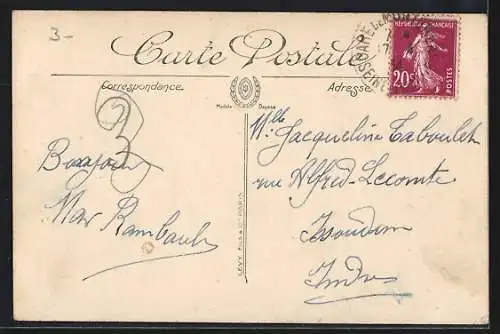 3-
Carte Postale
RÉPUBLIQUE FRANÇAISE
20c
POSTES
Correspondance.
Adresse
Modèle Déposé
3
Bonjour
Max Rambault
LEVY FILS & Cie PARIS
Mlle Jacqueline Taboulet
rue Alfred-Lecomte
Issoudun
Indre